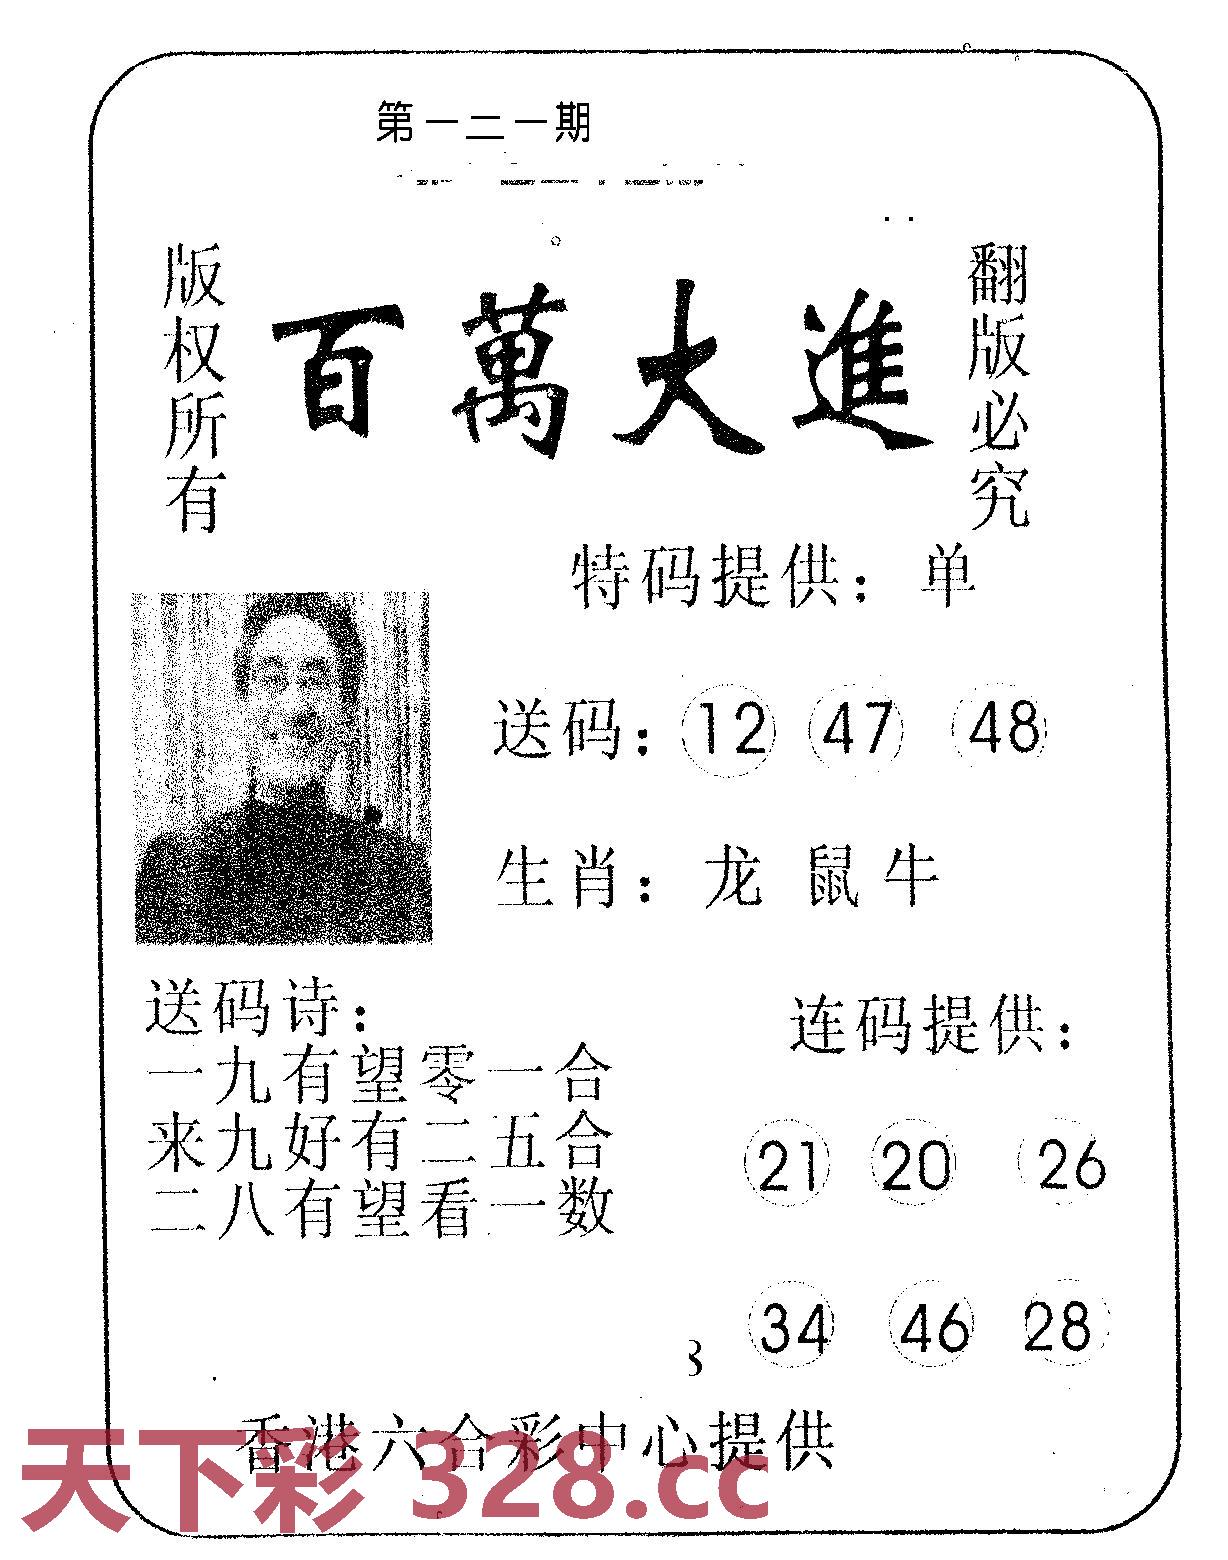 第一二一期
版权所有
百萬大進
翻版必究
特码提供：单
送码：12 47 48
生肖：龙 鼠 牛
送码诗：
一九有望零一合
来九好有二五合
二八有望看一数
连码提供：
21 20 26
34 46 28
香港六合彩中心提供
天下彩 328.cc